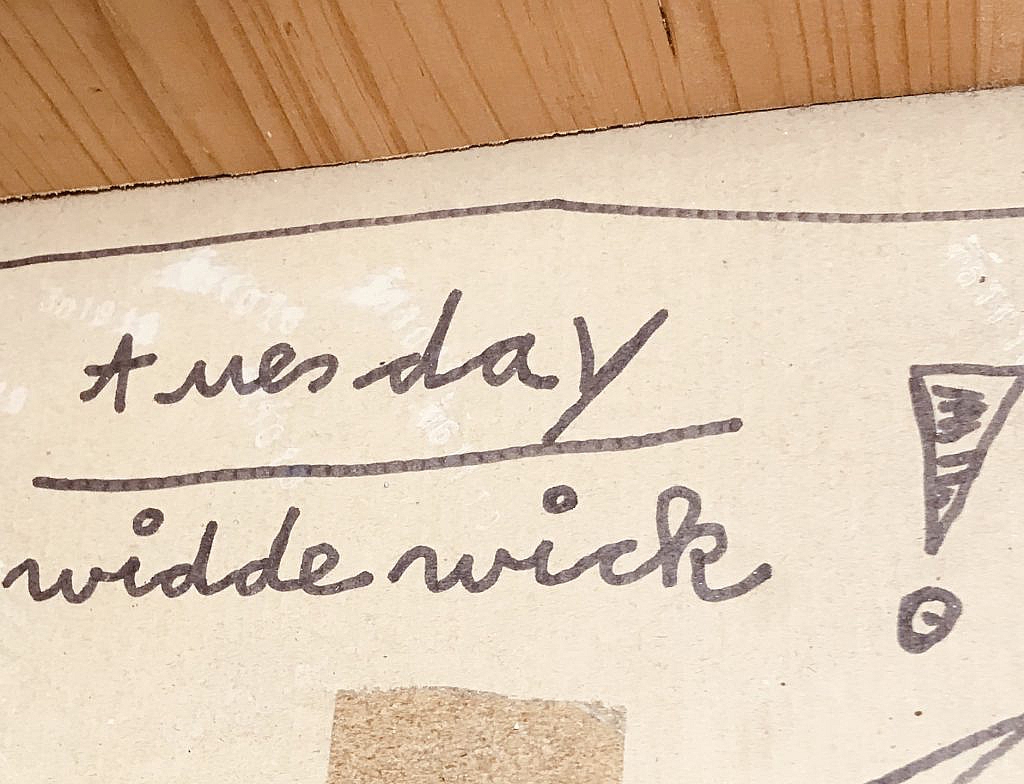 tuesday
widde wick
!